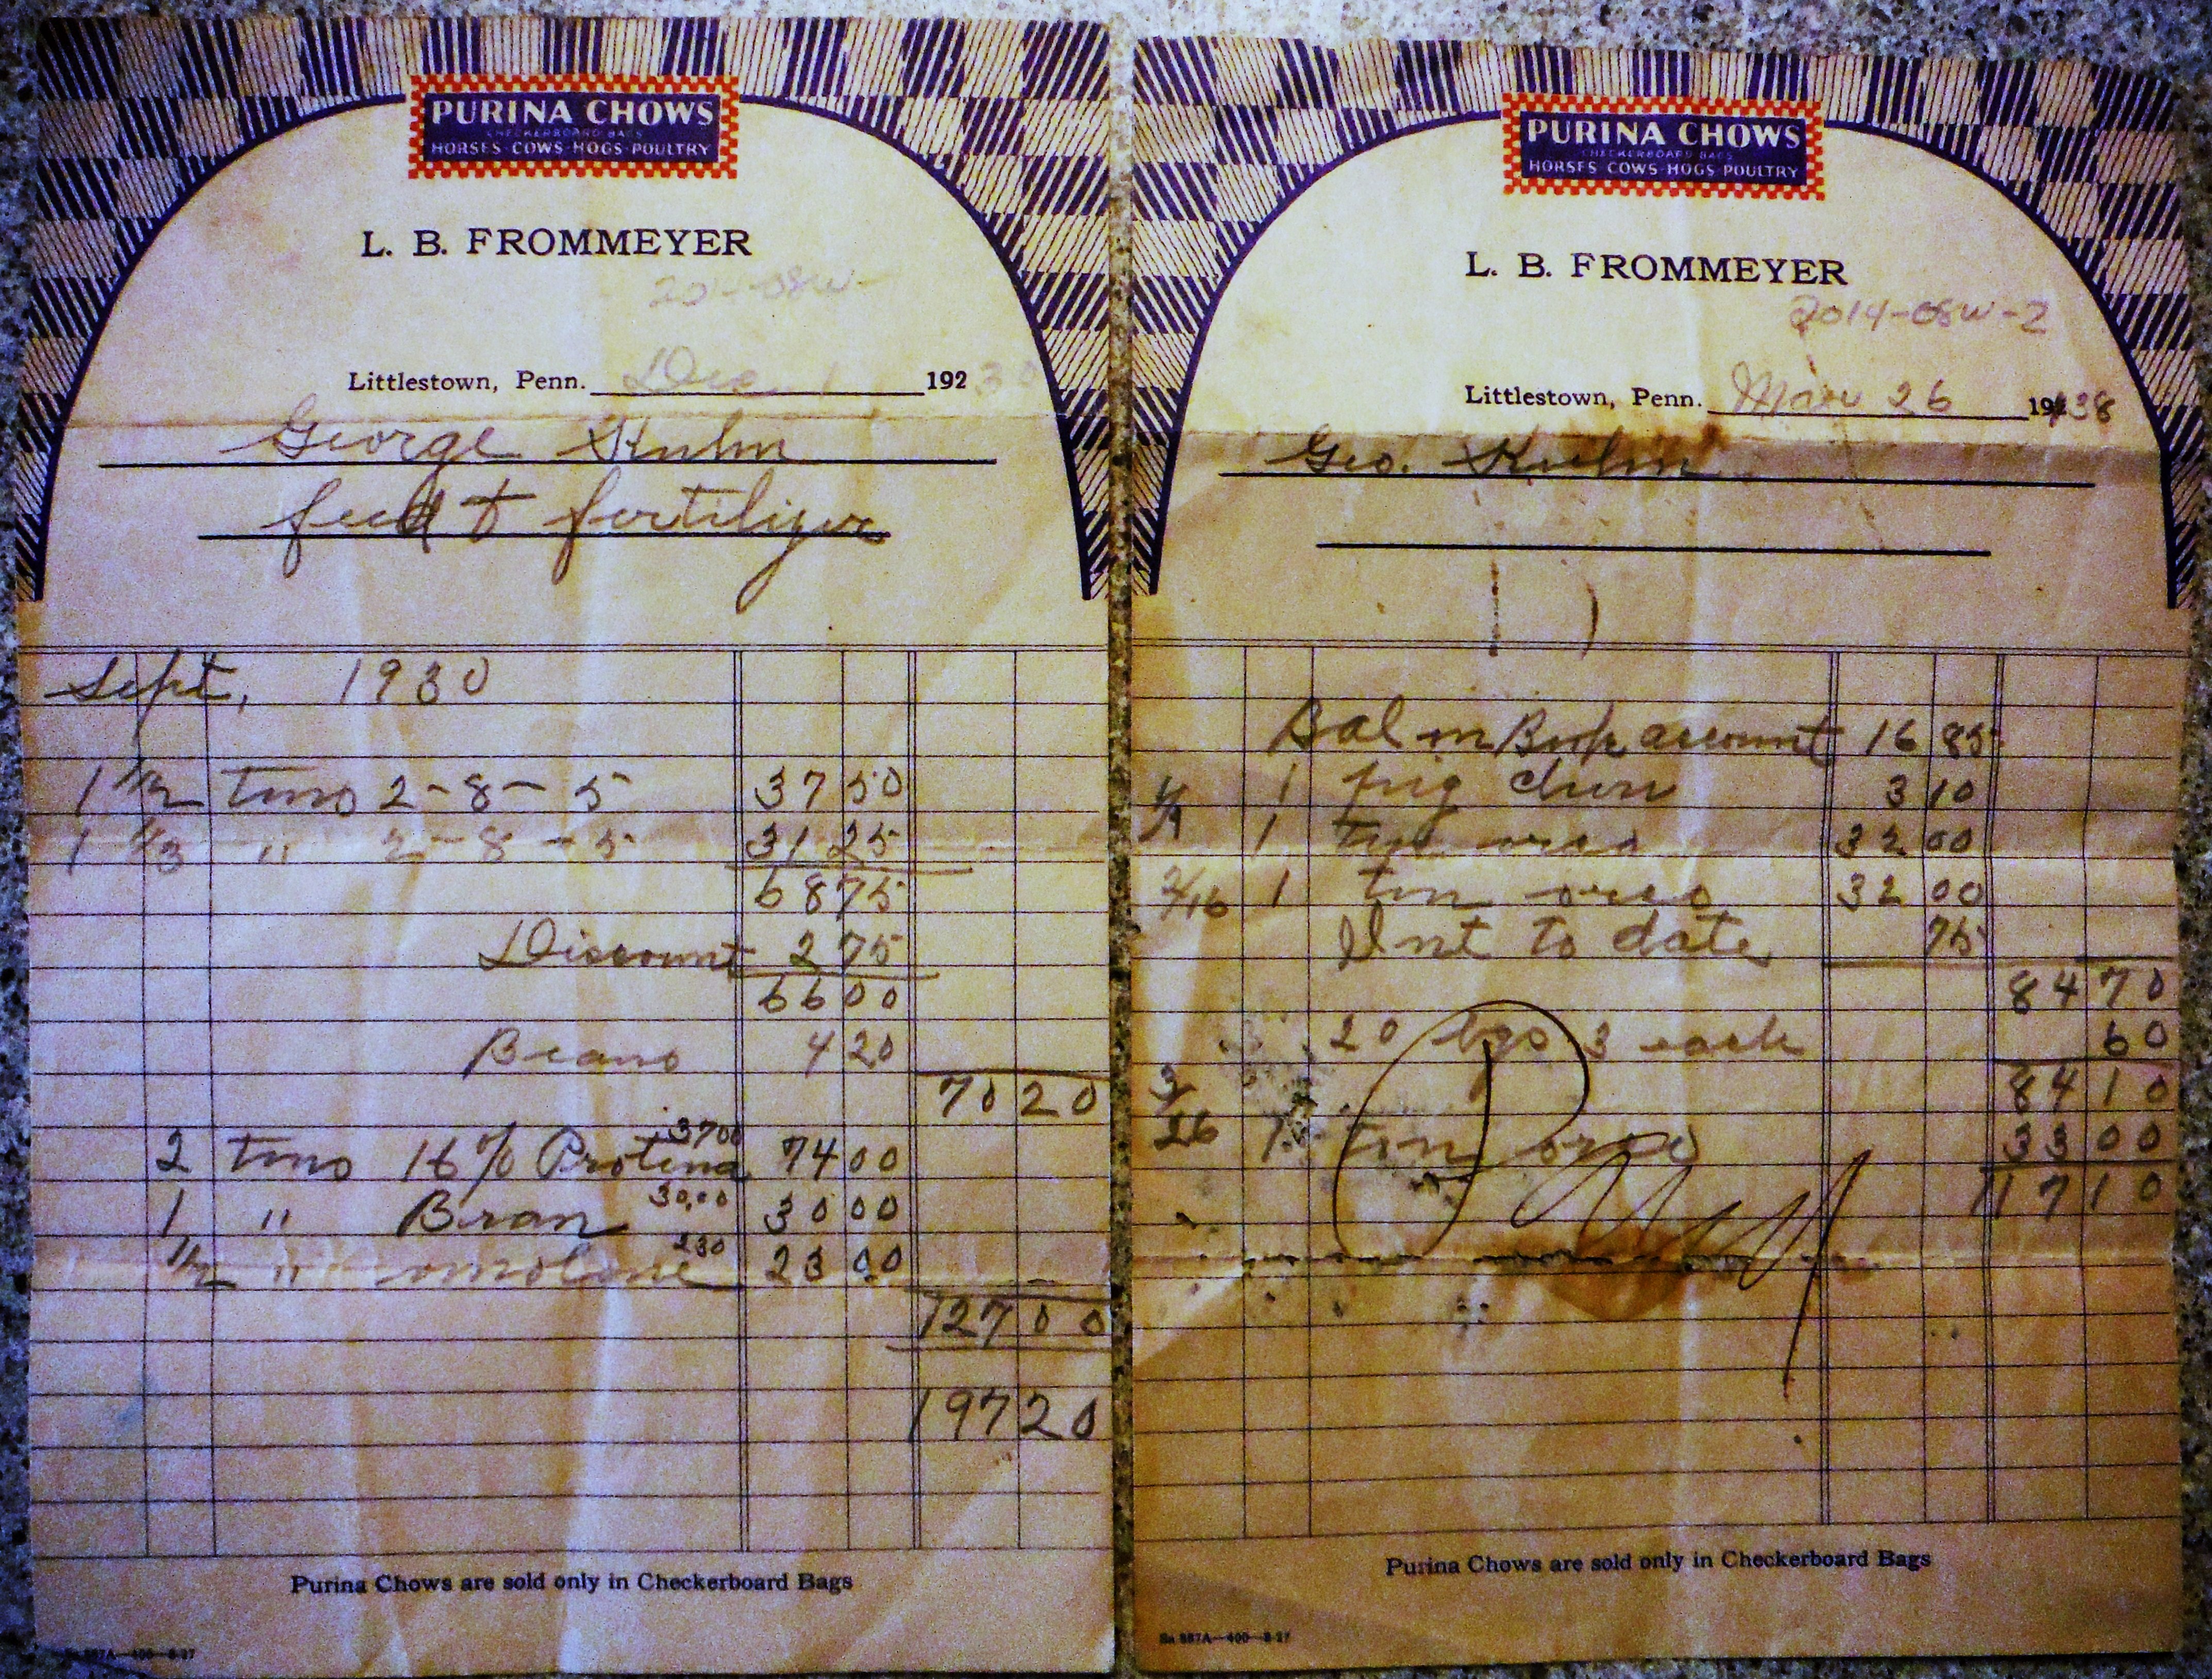 PURINA CHOWS
CHECKERBOARD BAGS
HORSES·COWS·HOGS·POULTRY
L. B. FROMMEYER
Littlestown, Penn. Dec. 1 192 30
George Kuhn
feed & fertilizer
Sept, 1930
1 1/2 tons 2-8-5 37 50
1 1/3 " 2-8-5 31 25
68 75
Discount 2 75
66 00
Beans 4 20
70 20
2 tons 16% Protena 3700 74 00
1 " Bran 30,00 30 00
1/2 " omolene 230 23 00
127 00
197 20
Purina Chows are sold only in Checkerboard Bags
887A—400—8-27
PURINA CHOWS
CHECKERBOARD BAGS
HORSES·COWS·HOGS·POULTRY
L. B. FROMMEYER
2014-08W-2
Littlestown, Penn. Mar 26 19 38
Geo. Kuhn
Bal on Book account 16 85
1 pig chow 3 10
1 ton 32 00
2/16 1 ton 32 00
Int to date 75
84 70
20 bgs 3 each 60
84 10
3/26 1 ton 33 00
117 10
Purina Chows are sold only in Checkerboard Bags
887A—400—8-27